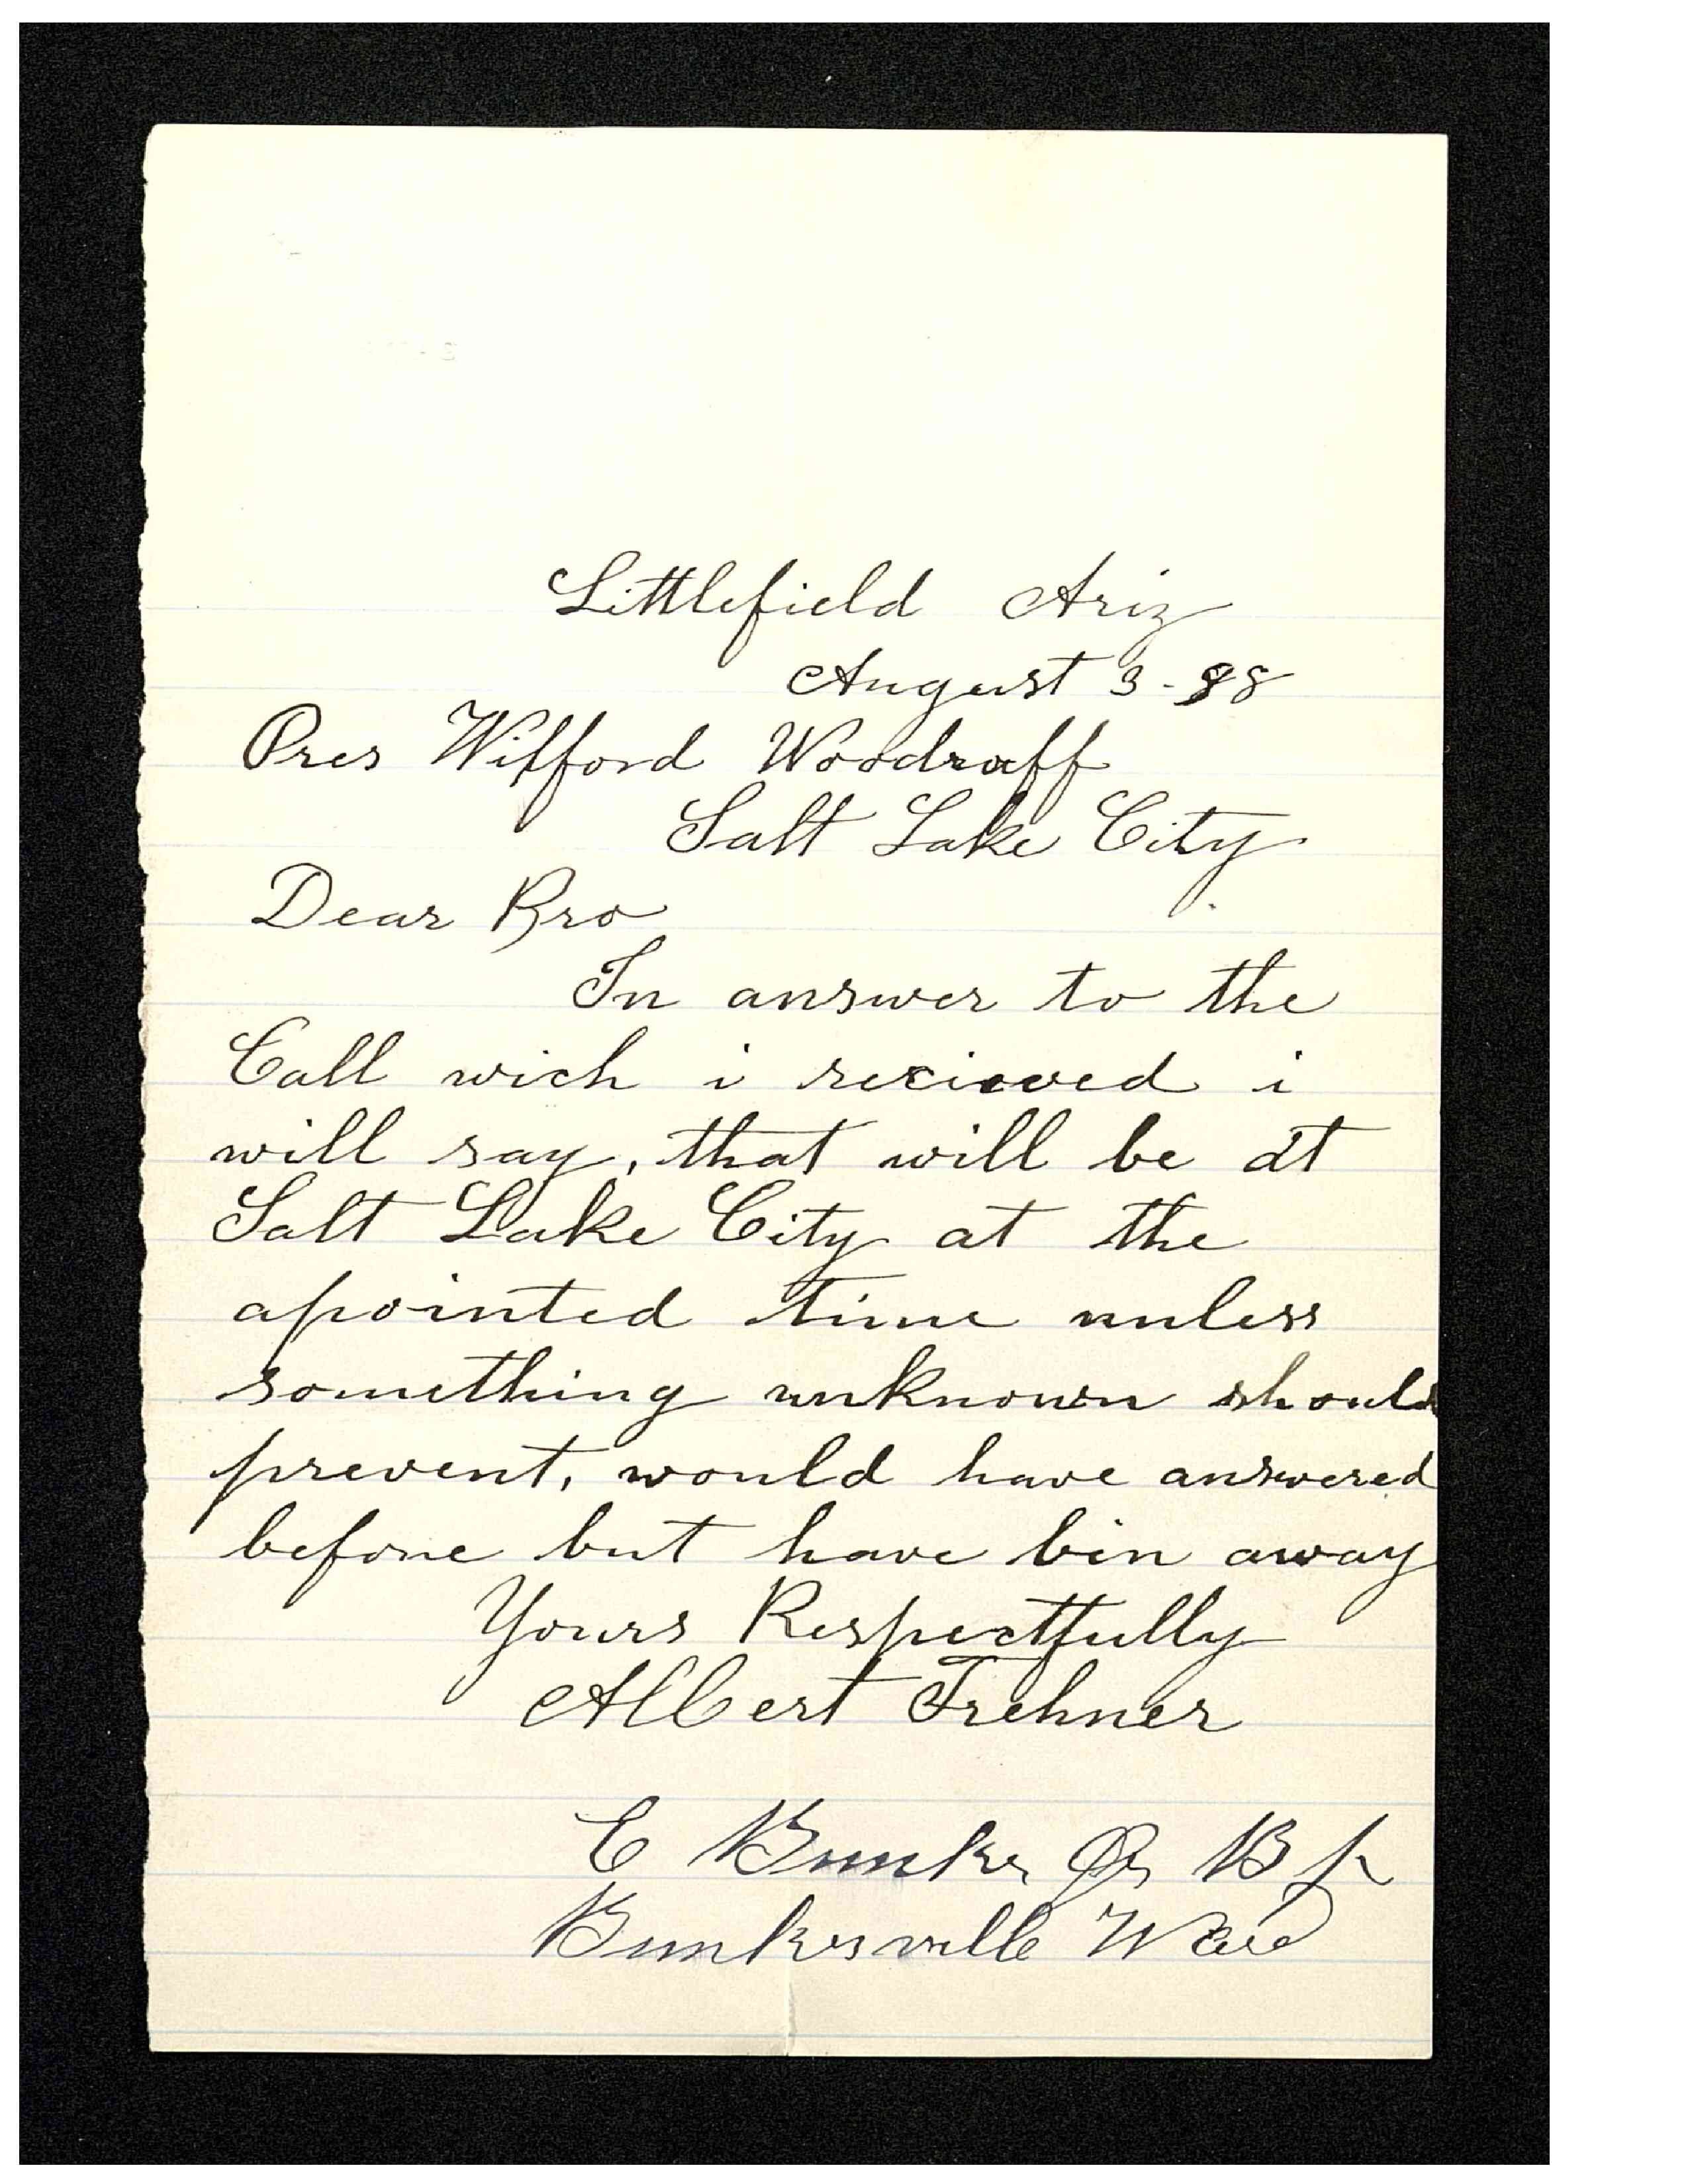 Littlefield Ariz
August 3-88
Pres Wilford Woodruff
Salt Lake City
Dear Bro
In answer to the
Call wich i recieved i
will say, that will be at
Salt Lake City at the
apointed time unless
something unknown should
prevent, would have answered
before but have bin away
Yours Respectfully
Albert Frehner
E Bunker Jr Bp
Bunkerville Ward